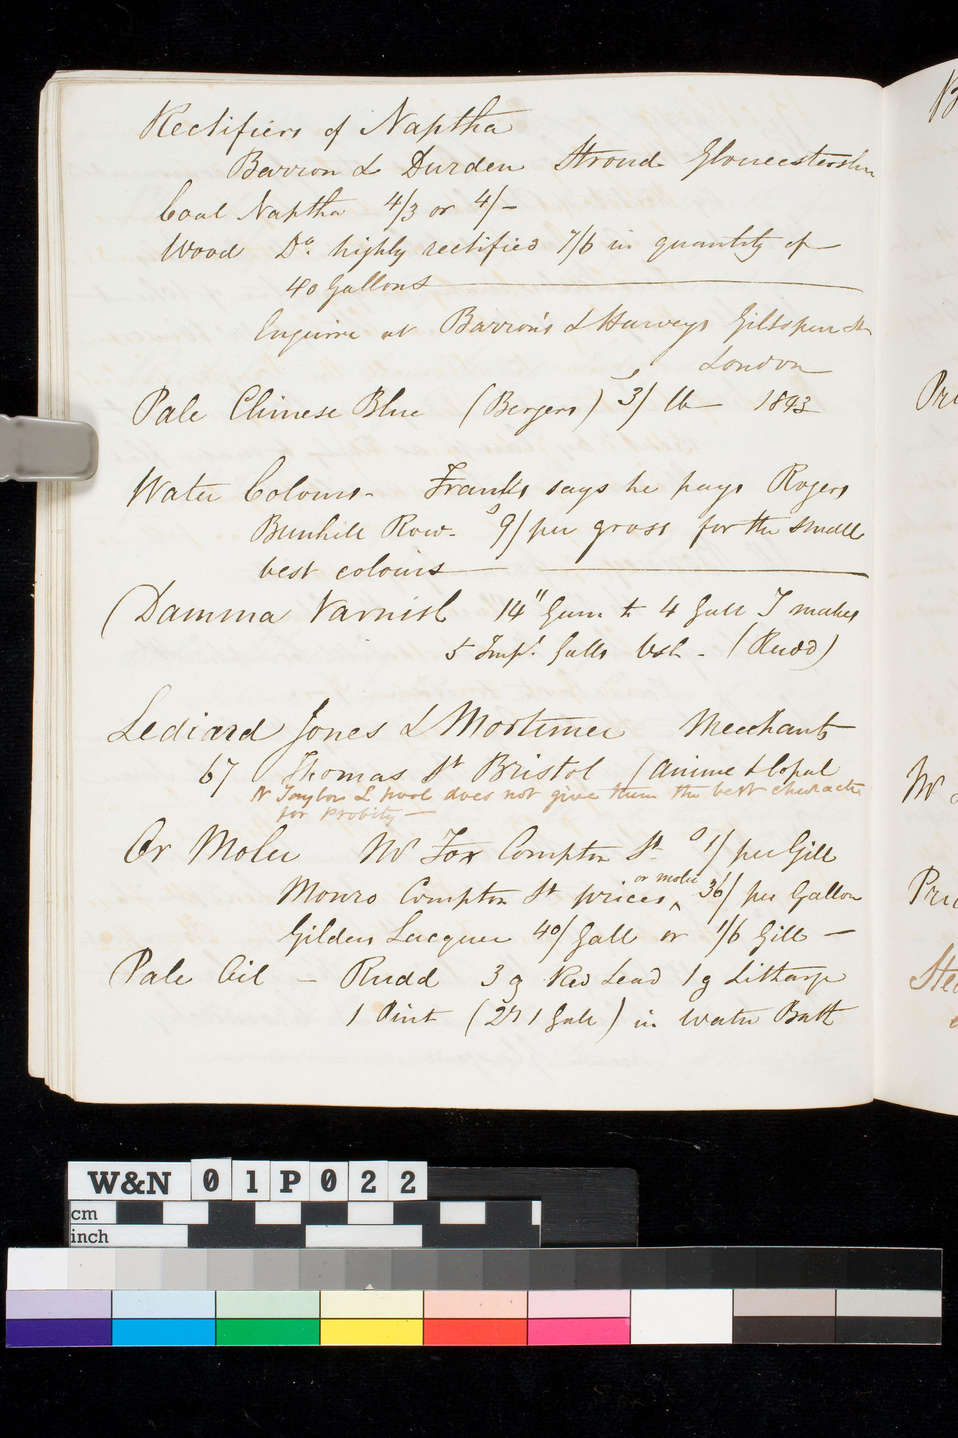 Rectifiers of Naptha
Barron & Durden Stroud Gloucestershire
Coal Naptha 4/3 or 4/-
Wood Do. highly rectified 7/6 in quantity of
40 Gallons
Enquire at Barron's & Harveys Giltspur St
London
Pale Chinese Blue (Bergers) 3/ lb 1843
Water Colours - Franks says he pays Rogers
Bunhill Row - 9/ per gross for the small
best colours
(Damma Varnish 14" Gum to 4 Gall T makes
5 Impl. Galls Vsh - (Rudd)
Lediard Jones & Mortimer Merchants
67 Thomas St Bristol (Anime & Copal
N Taylor L pool does not give them the best character
for probity -
Or Molu Mr Fox Compton St 1/ per Gill
or molu
Monro Compton St prices ^ 36/ per Gallon
Gilders Lacquer 40/ Gall or 1/6 Gill -
Pale Oil - Rudd 3 g Red Lead 1 g Litharge
1 Pint (27 1 Gall) in Water Bath
B
Pri
Mr
Pric
Stea
W&N 01P022
cm
inch